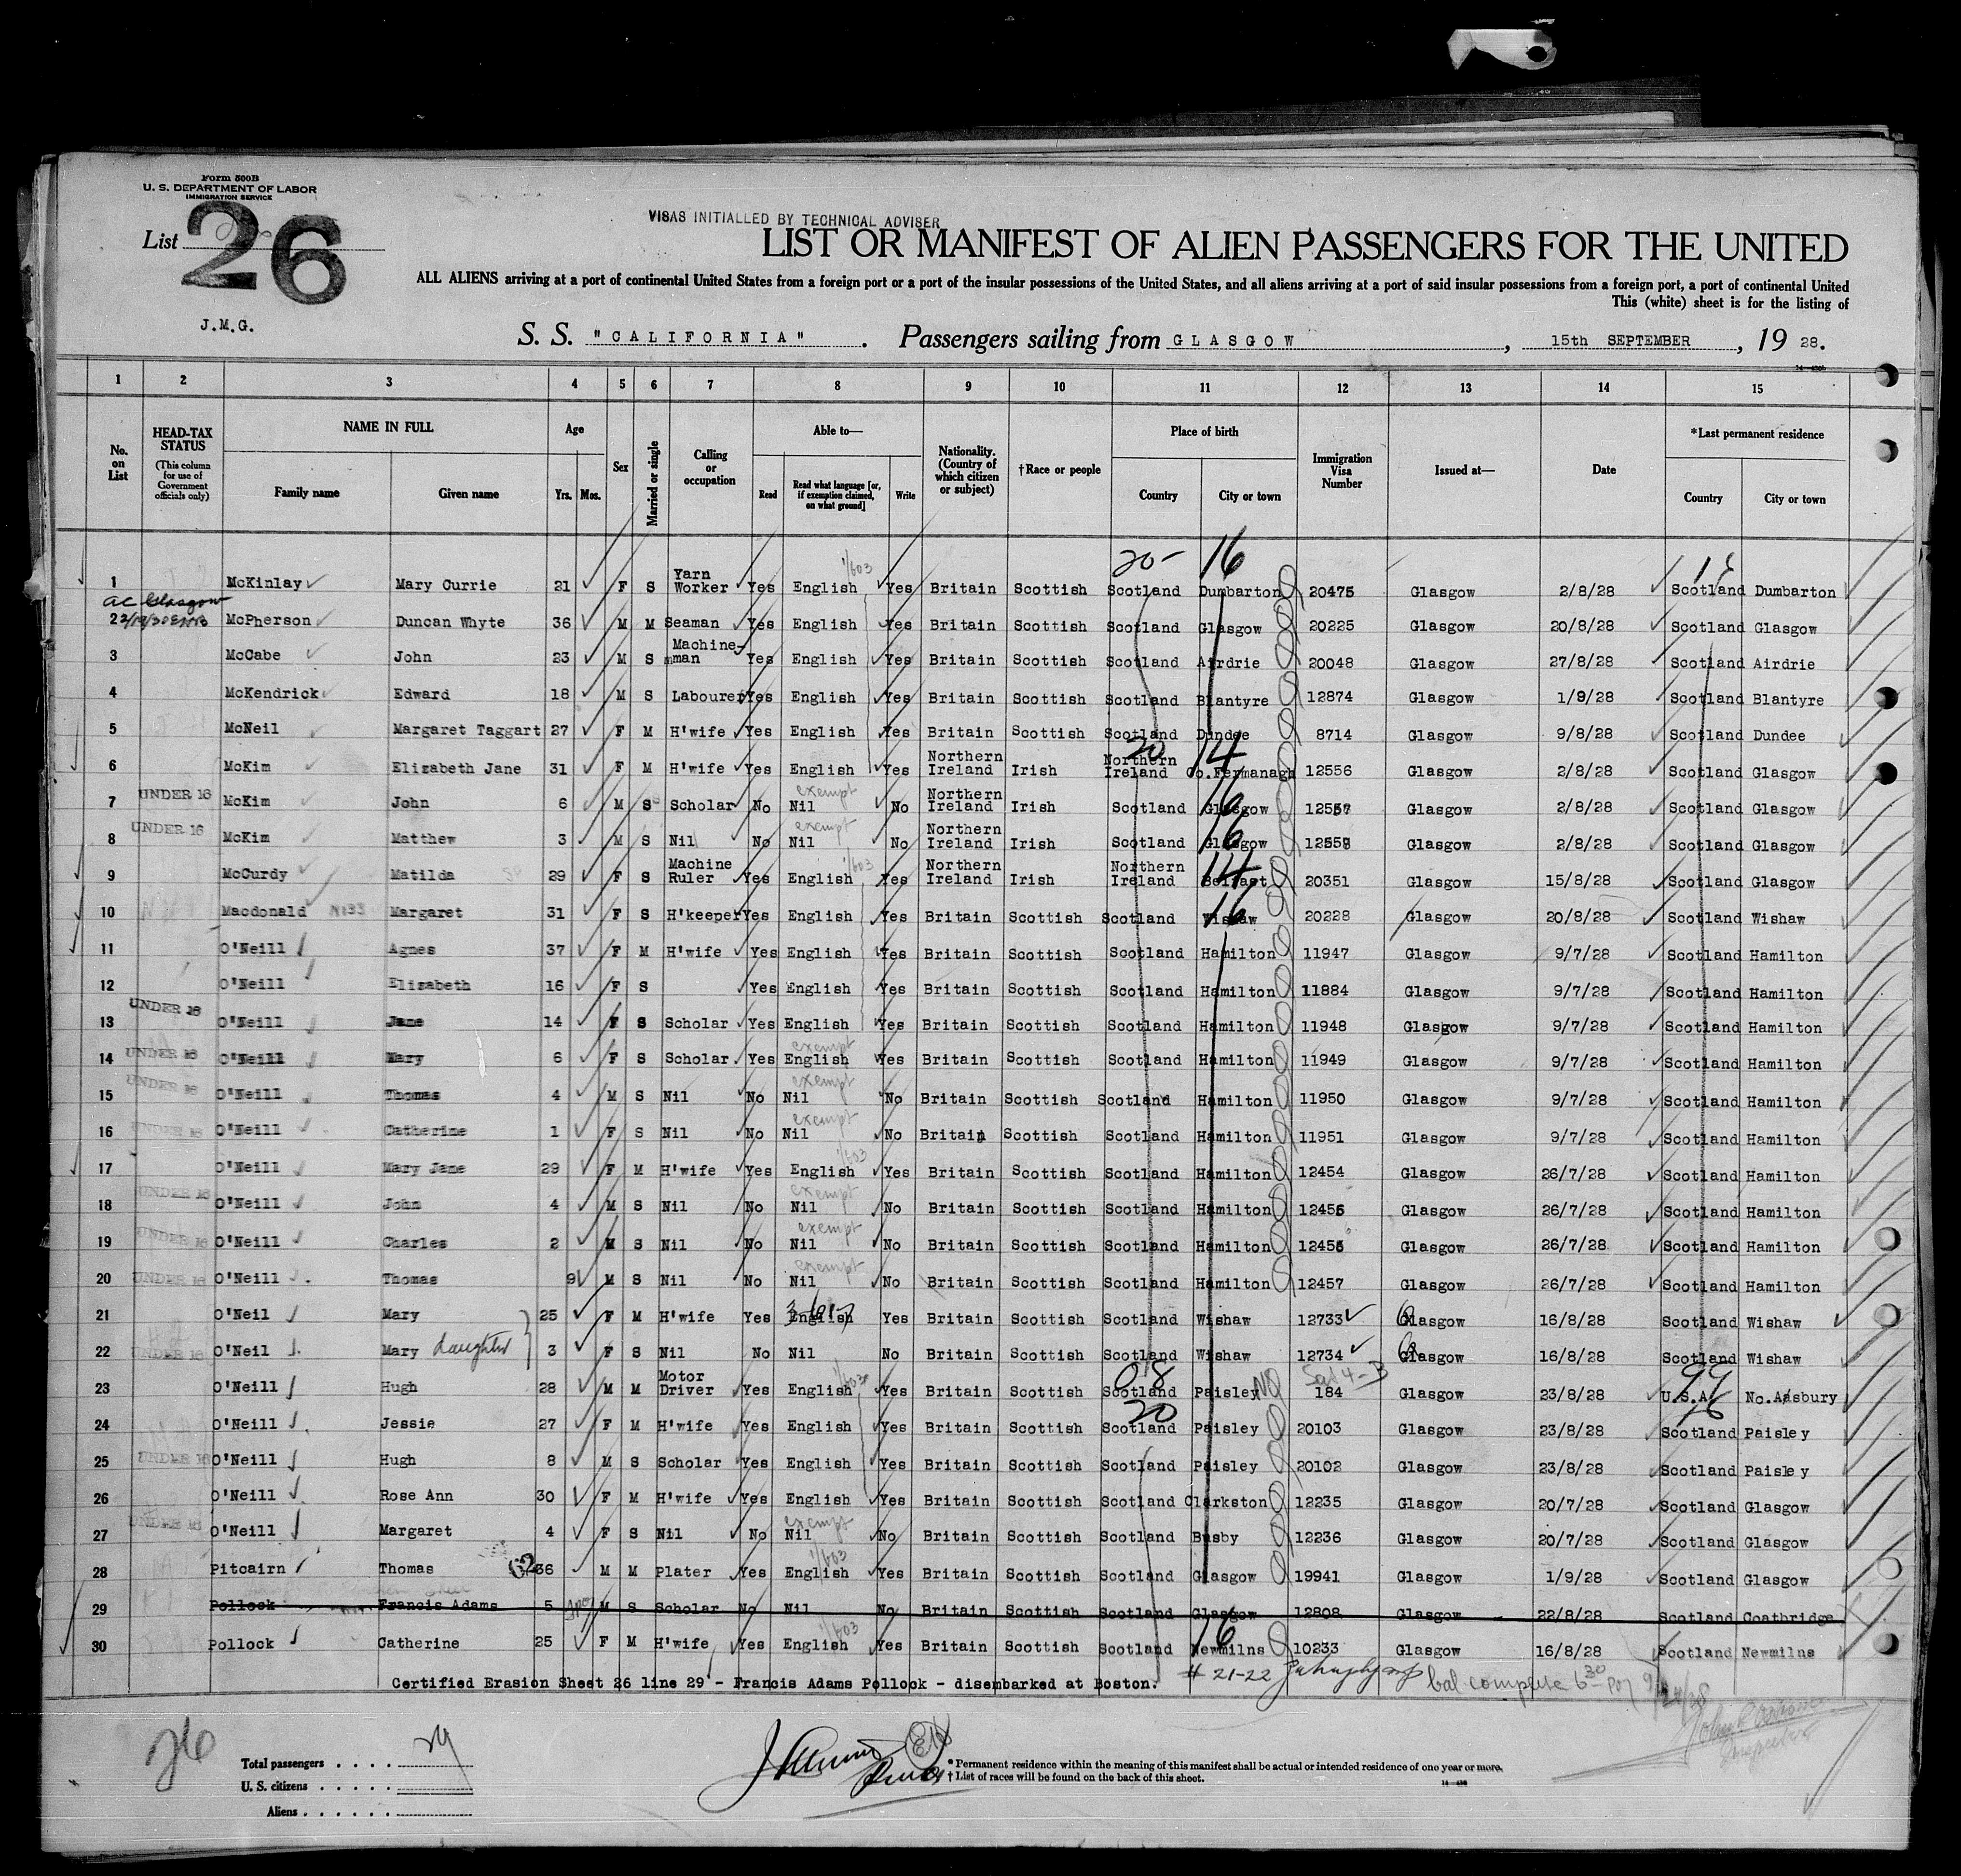 Form 500B
U. S. DEPARTMENT OF LABOR
IMMIGRATION SERVICE
List 26
J.M.G.
VISAS INITIALLED BY TECHNICAL ADVISER
LIST OR MANIFEST OF ALIEN PASSENGERS FOR THE UNITED
ALL ALIENS arriving at a port of continental United States from a foreign port or a port of the insular possessions of the United States, and all aliens arriving at a port of said insular possessions from a foreign port, a port of continental United
This (white) sheet is for the listing of
S. S. "CALIFORNIA". Passengers sailing from GLASGOW, 15th SEPTEMBER, 19 28.
1 2 3 4 5 6 7 8 9 10 11 12 13 14 15
No. on List
HEAD-TAX STATUS (This column for use of Government officials only)
NAME IN FULL Family name Given name
Age Yrs. Mos.
Sex
Married or single
Calling or occupation
Able to— Read Read what language [or, if exemption claimed, on what ground] Write
Nationality. (Country of which citizen or subject)
†Race or people
Place of birth Country City or town
Immigration Visa Number
Issued at—
Date
*Last permanent residence Country City or town
20- 16
1 McKinlay Mary Currie 21 F S Yarn Worker Yes English Yes Britain Scottish Scotland Dumbarton 20475 Glasgow 2/8/28 Scotland Dumbarton
ac Glasgow
2 McPherson Duncan Whyte 36 M M Seaman Yes English Yes Britain Scottish Scotland Glasgow 20225 Glasgow 20/8/28 Scotland Glasgow
3 McCabe John 23 M S Machine-man Yes English Yes Britain Scottish Scotland Airdrie 20048 Glasgow 27/8/28 Scotland Airdrie
4 McKendrick Edward 18 M S Labourer Yes English Yes Britain Scottish Scotland Blantyre 12874 Glasgow 1/9/28 Scotland Blantyre
5 McNeil Margaret Taggart 27 F M H'wife Yes English Yes Britain Scottish Scotland Dundee 8714 Glasgow 9/8/28 Scotland Dundee
20 14
6 McKim Elizabeth Jane 31 F M H'wife Yes English Yes Northern Ireland Irish Northern Ireland Co.Fermanagh 12556 Glasgow 2/8/28 Scotland Glasgow
7 UNDER 16 McKim John 6 M S Scholar No Nil exempt No Northern Ireland Irish Scotland Glasgow 16 12557 Glasgow 2/8/28 Scotland Glasgow
8 UNDER 16 McKim Matthew 3 M S Nil No Nil exempt No Northern Ireland Irish Scotland Glasgow 16 12558 Glasgow 2/8/28 Scotland Glasgow
9 McCurdy Matilda 29 F S Machine Ruler Yes English Yes Northern Ireland Irish Northern Ireland Belfast 14 20351 Glasgow 15/8/28 Scotland Glasgow
10 Macdonald Margaret 31 F S H'keeper Yes English Yes Britain Scottish Scotland Wishaw 16 20228 Glasgow 20/8/28 Scotland Wishaw
11 O'Neill Agnes 37 F M H'wife Yes English Yes Britain Scottish Scotland Hamilton 11947 Glasgow 9/7/28 Scotland Hamilton
12 O'Neill Elizabeth 16 F S Yes English Yes Britain Scottish Scotland Hamilton 11884 Glasgow 9/7/28 Scotland Hamilton
13 UNDER 16 O'Neill Jane 14 F S Scholar Yes English Yes Britain Scottish Scotland Hamilton 11948 Glasgow 9/7/28 Scotland Hamilton
14 UNDER 16 O'Neill Mary 6 F S Scholar Yes English exempt Yes Britain Scottish Scotland Hamilton 11949 Glasgow 9/7/28 Scotland Hamilton
15 UNDER 16 O'Neill Thomas 4 M S Nil No Nil exempt No Britain Scottish Scotland Hamilton 11950 Glasgow 9/7/28 Scotland Hamilton
16 UNDER 16 O'Neill Catherine 1 F S Nil No Nil exempt No Britain Scottish Scotland Hamilton 11951 Glasgow 9/7/28 Scotland Hamilton
17 O'Neill Mary Jane 29 F M H'wife Yes English Yes Britain Scottish Scotland Hamilton 12454 Glasgow 26/7/28 Scotland Hamilton
18 UNDER 16 O'Neill John 4 M S Nil No Nil exempt No Britain Scottish Scotland Hamilton 12455 Glasgow 26/7/28 Scotland Hamilton
19 UNDER 16 O'Neill Charles 2 M S Nil No Nil exempt No Britain Scottish Scotland Hamilton 12456 Glasgow 26/7/28 Scotland Hamilton
20 UNDER 16 O'Neill Thomas 9 M S Nil No Nil exempt No Britain Scottish Scotland Hamilton 12457 Glasgow 26/7/28 Scotland Hamilton
21 O'Neil Mary 25 F M H'wife Yes English Yes Britain Scottish Scotland Wishaw 12733 Glasgow 16/8/28 Scotland Wishaw
22 UNDER 16 O'Neil Mary daughter 3 F S Nil No Nil No Britain Scottish Scotland Wishaw 12734 Glasgow 16/8/28 Scotland Wishaw
23 O'Neill Hugh 28 M M Motor Driver Yes English Yes Britain Scottish Scotland Paisley NO 184 Glasgow 23/8/28 U.S.A. No.Aasbury
24 O'Neill Jessie 27 F M H'wife Yes English Yes Britain Scottish Scotland Paisley 20103 Glasgow 23/8/28 Scotland Paisley
25 UNDER 16 O'Neill Hugh 8 M S Scholar Yes English Yes Britain Scottish Scotland Paisley 20102 Glasgow 23/8/28 Scotland Paisley
26 O'Neill Rose Ann 30 F M H'wife Yes English Yes Britain Scottish Scotland Clarkston 12235 Glasgow 20/7/28 Scotland Glasgow
27 UNDER 16 O'Neill Margaret 4 F S Nil No Nil exempt No Britain Scottish Scotland Busby 12236 Glasgow 20/7/28 Scotland Glasgow
28 Pitcairn Thomas 36 M M Plater Yes English Yes Britain Scottish Scotland Glasgow 19941 Glasgow 1/9/28 Scotland Glasgow
29 Pollock Francis Adams 5 M S Scholar No Nil No Britain Scottish Scotland Glasgow 12808 Glasgow 22/8/28 Scotland Coatbridge
30 Pollock Catherine 25 F M H'wife Yes English Yes Britain Scottish Scotland Newmilns 16 10233 Glasgow 16/8/28 Scotland Newmilns
Certified Erasion Sheet 26 line 29 - Francis Adams Pollock - disembarked at Boston.
# 21-22
bal complete 6 30
26
Total passengers 29
U. S. citizens
Aliens
* Permanent residence within the meaning of this manifest shall be actual or intended residence of one year or more.
† List of races will be found on the back of this sheet.
Inspector